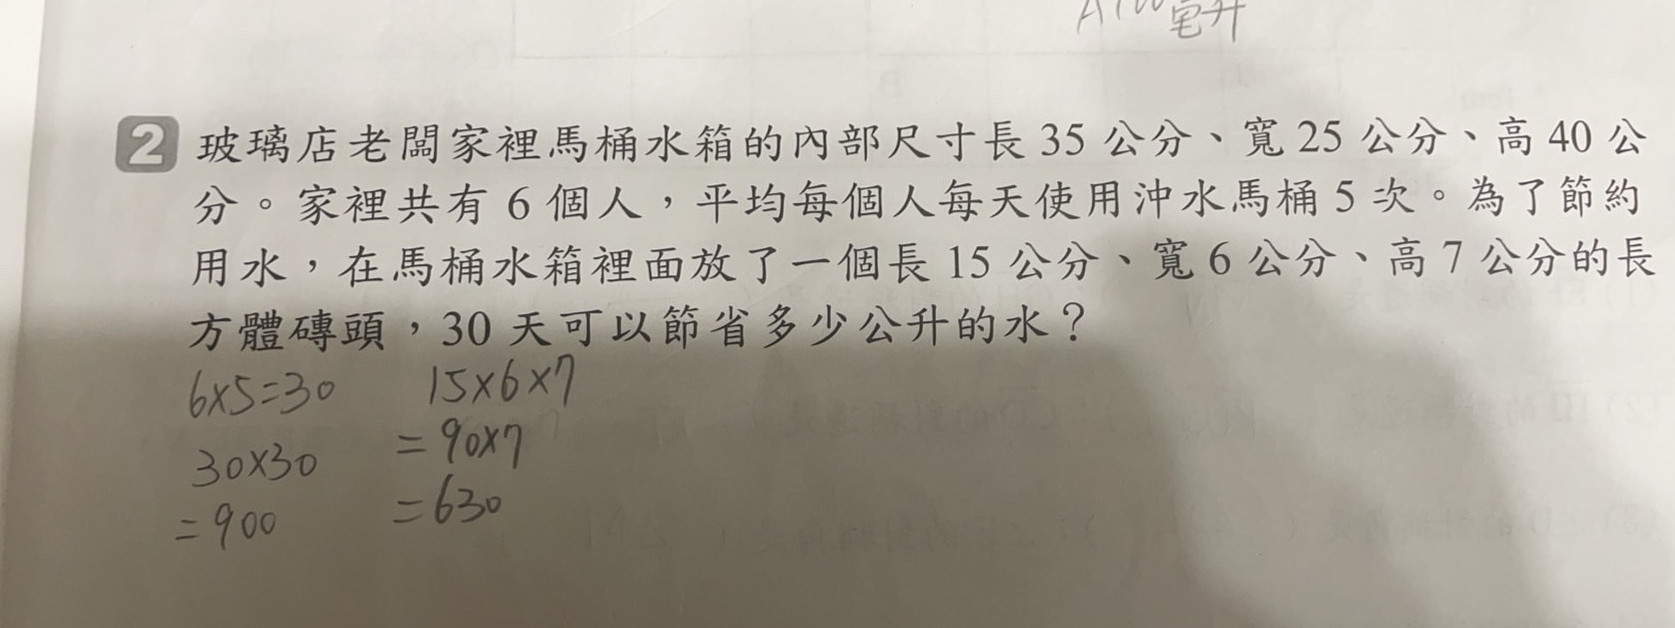 毫升
2 玻璃店老闆家裡馬桶水箱的內部尺寸長 35 公分、寬 25 公分、高 40 公
分。家裡共有 6 個人，平均每個人每天使用沖水馬桶 5 次。為了節約
用水，在馬桶水箱裡面放了一個長 15 公分、寬 6 公分、高 7 公分的長
方體磚頭，30 天可以節省多少公升的水？
6×5=30 15×6×7
30×30 =90×7
=900 =630